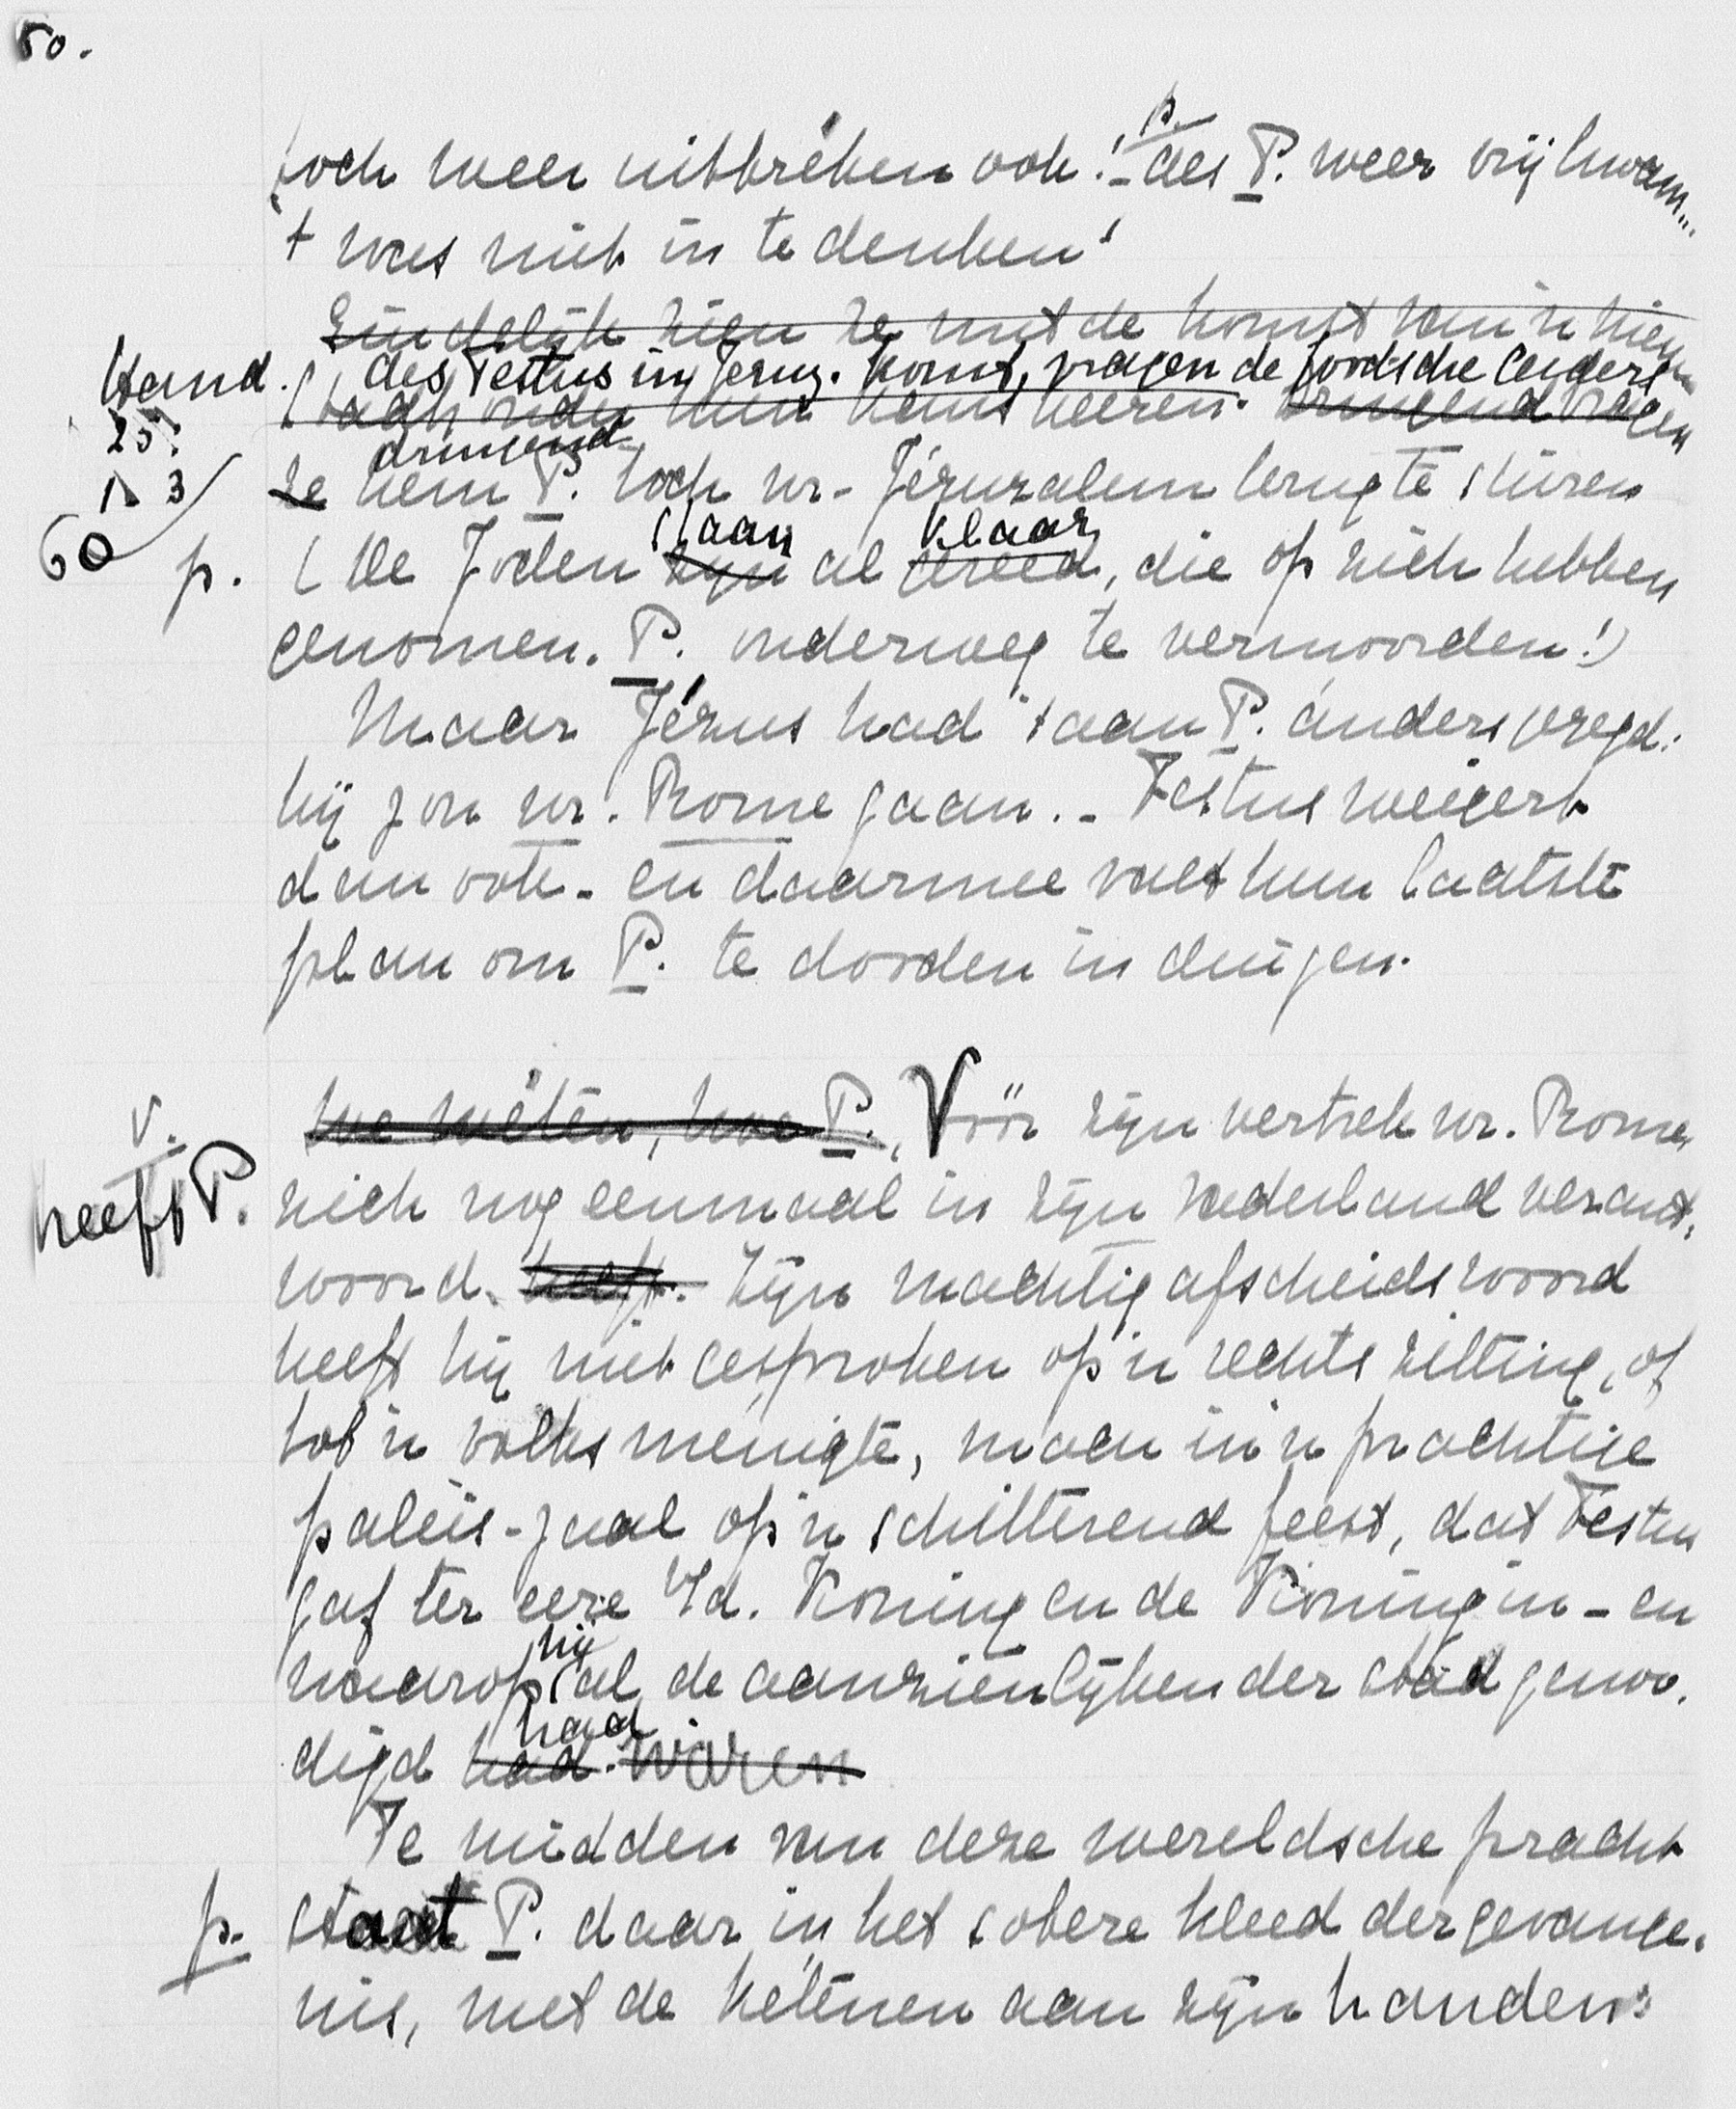 50.
toch weer uitbreken ook! - p. als P. weer vrij kwam...
't was niet in te denken!
Eindelijk zien ze met de komst van 'n nieuwen
Hand. 25: 1-3
als Festus in Jeruz. komt, vragen de Joodsche leiders
hun kans keeren. dringend vragen
dringend
ze hem P. toch nr. Jéruzalem terug te sturen
60
p. (De Joden zijn staan al gereed klaar, die op zich hebben
genomen. P. onderweg te vermoorden!)
Maar Jézus had 't aan P. ánders gezegd:
hij zou nr. Rome gaan. - Festus weigert
dan ook - en daarmee valt hun laatste
plan om P. te dooden in duigen.
We wéten, hoe P., Vóór zijn vertrek nr. Rome,
v. heeft P.
zich nog eenmaal in zijn vaderland verant-
woord. heeft. Zijn machtig afscheidswoord
heeft hij niet gesproken op 'n rechtszitting, of
tot 'n volksmenigte, maar in 'n prachtige
paleis-zaal op 'n schitterend feest, dat Festus
gaf ter eere v/d. Koning en de Koningin - en
waarop hij al de aanzienlijken der stad genoo-
digd had. had waren
Te midden van deze wereldsche pracht
p. staat P. daar in het sobere kleed der gevange-
nis, met de ketenen aan zijn handen: